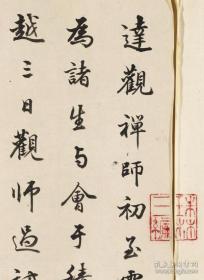 達觀禪師初至
為諸生与會于
越三日觀師過